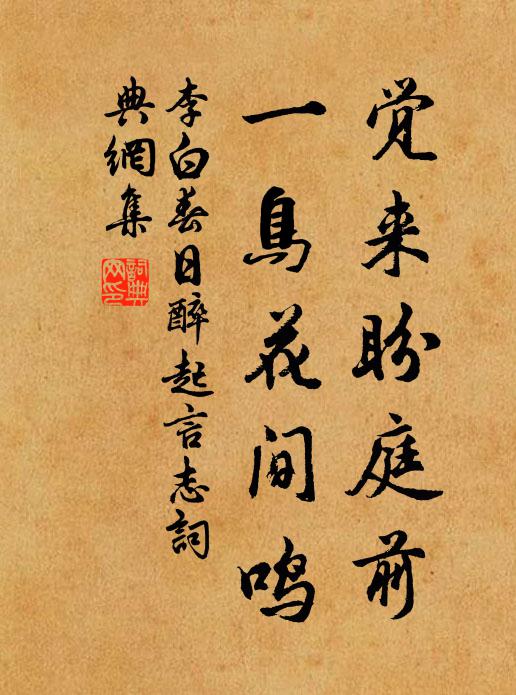 覚来盼庭前
一鳥花间鸣
李白春日醉起言志詞
典網集
詞典
网印